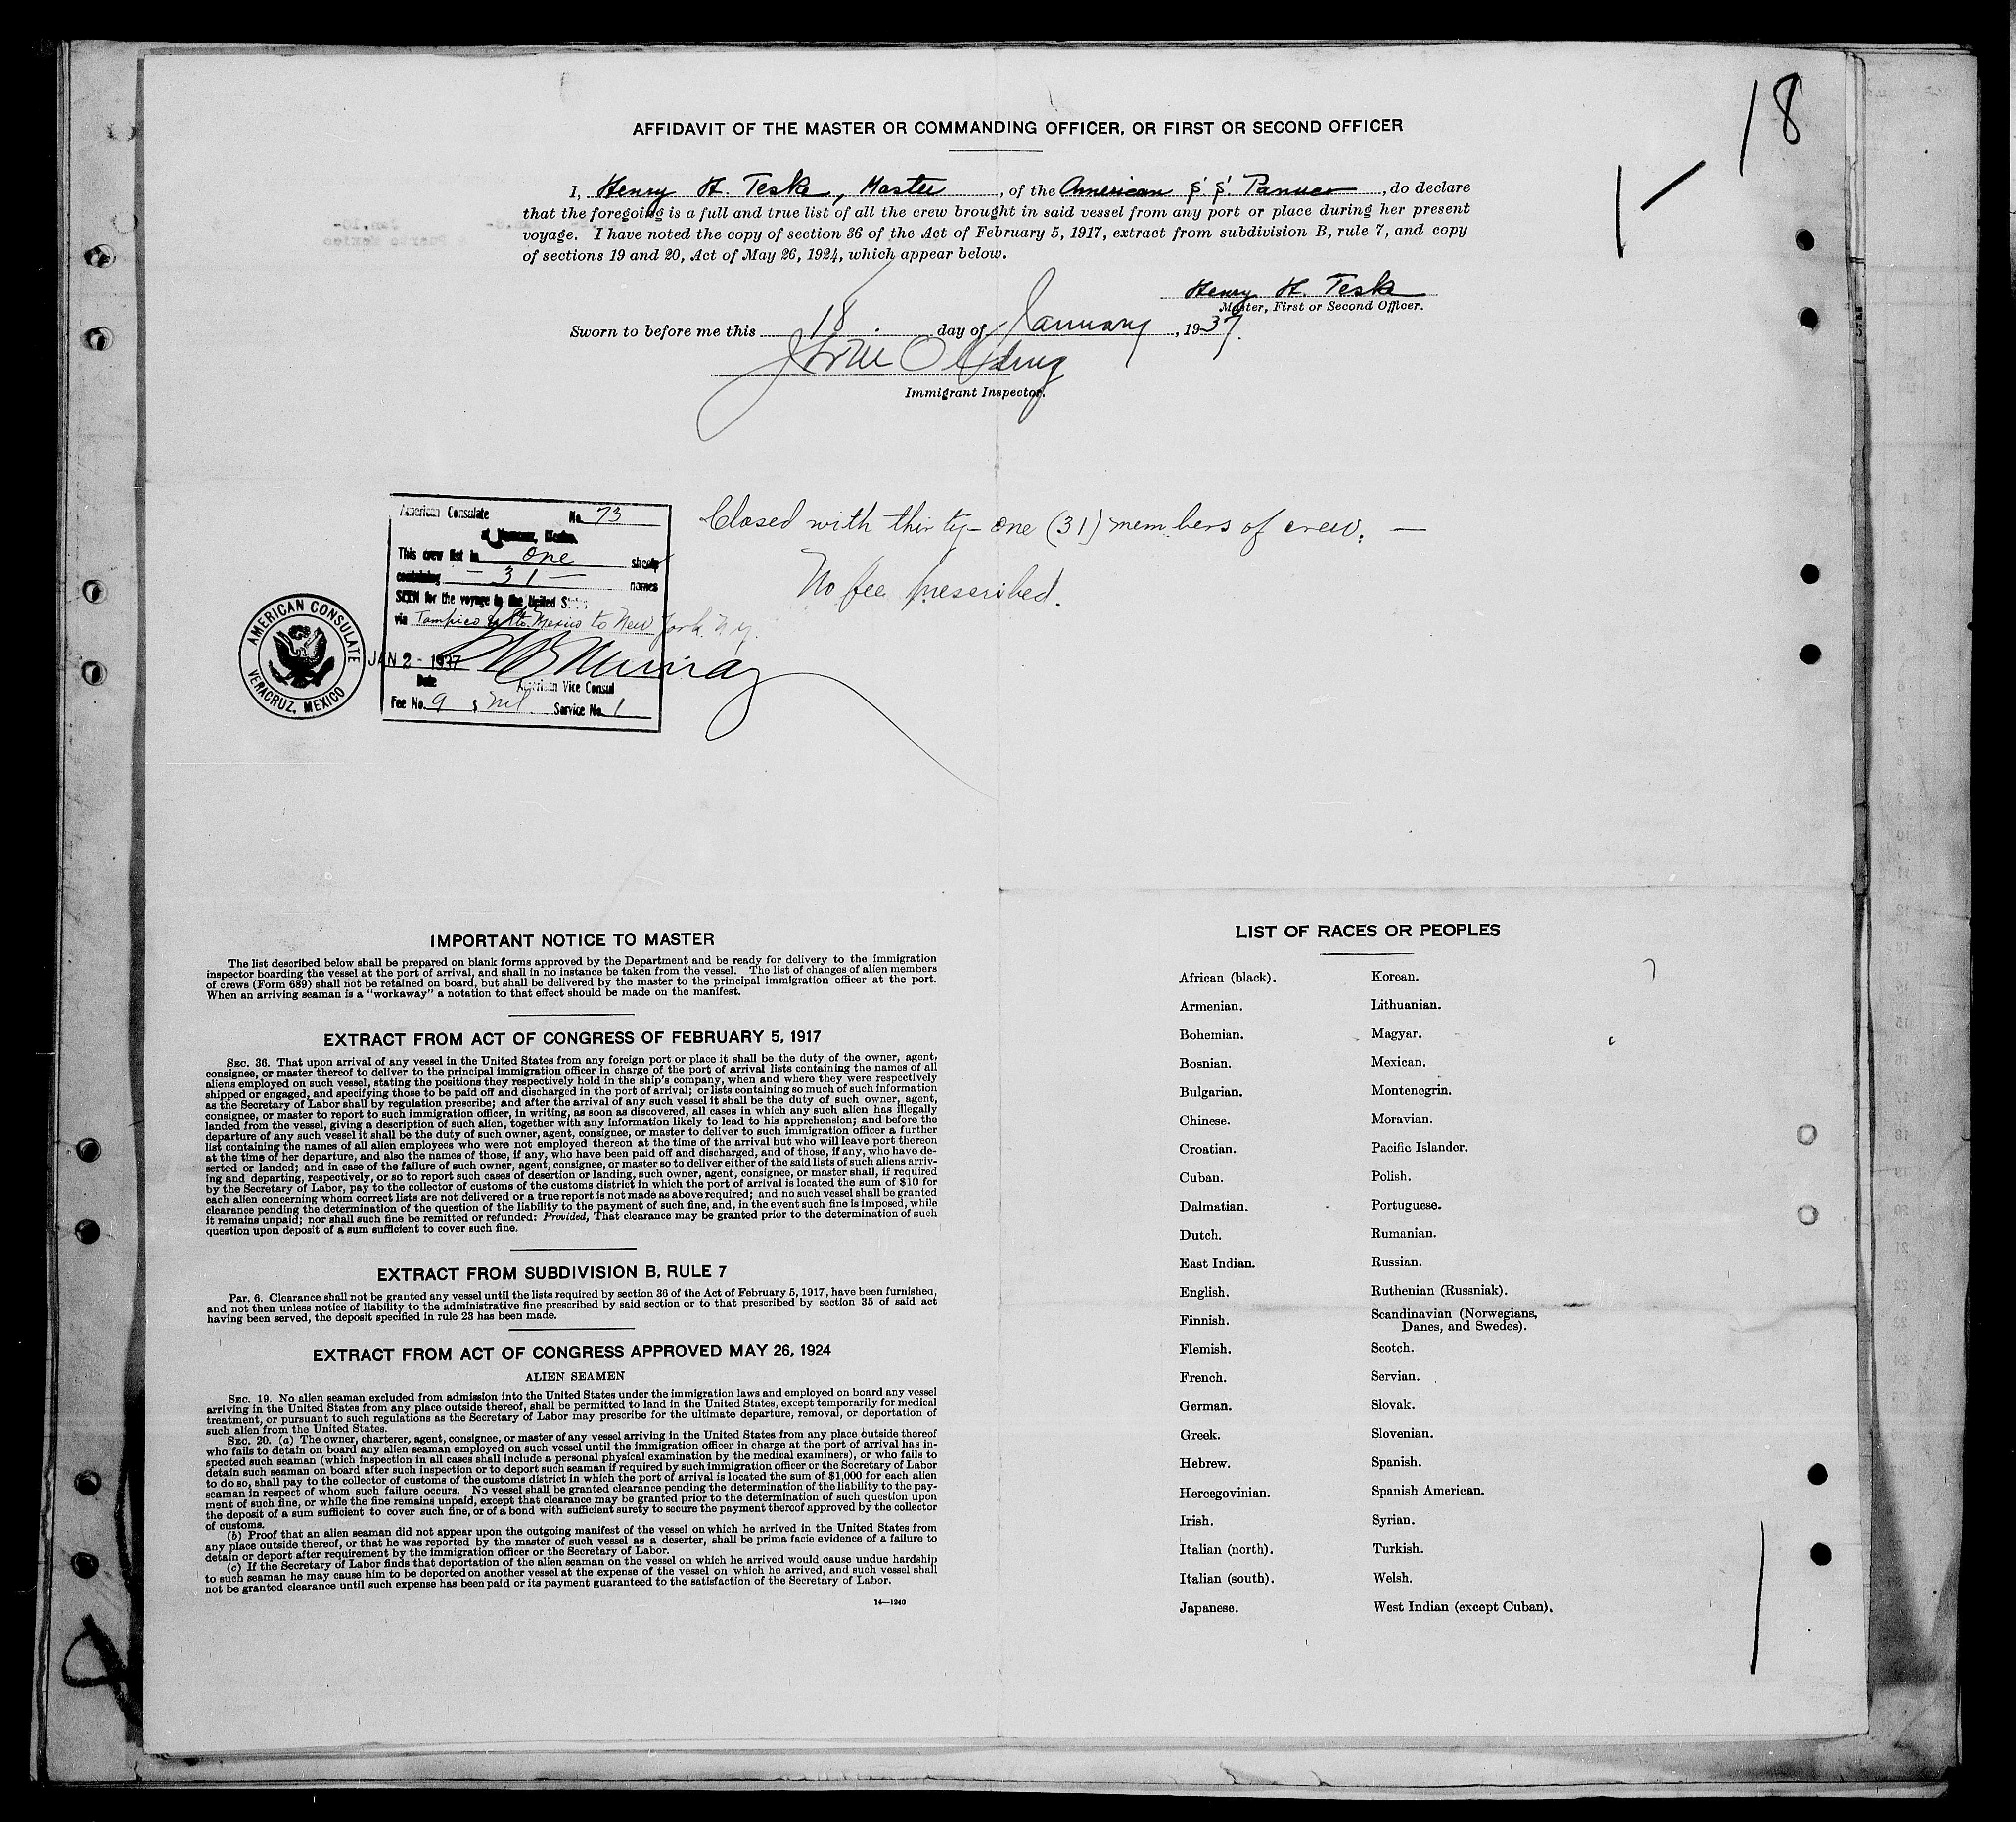 18
AFFIDAVIT OF THE MASTER OR COMMANDING OFFICER, OR FIRST OR SECOND OFFICER
I, Henry H. Teske, Master, of the American S. S. Panuco, do declare
that the foregoing is a full and true list of all the crew brought in said vessel from any port or place during her present
voyage. I have noted the copy of section 36 of the Act of February 5, 1917, extract from subdivision B, rule 7, and copy
of sections 19 and 20, Act of May 26, 1924, which appear below.
Henry H. Teske
Master, First or Second Officer.
Sworn to before me this 18 day of January, 1937.
Immigrant Inspector.
American Consulate No. 73
at Veracruz, Mexico.
This crew list in one sheets
containing - 31 - names
SEEN for the voyage to the United States
via Tampico & Pto. Mexico to New York. N.Y.
JAN 2 - 1937 Murray
Date American Vice Consul
Fee No. 9 $ nil Service No. 1
AMERICAN CONSULATE
VERACRUZ, MEXICO
Closed with thirty-one (31) members of crew. —
No fee prescribed.
IMPORTANT NOTICE TO MASTER
The list described below shall be prepared on blank forms approved by the Department and be ready for delivery to the immigration
inspector boarding the vessel at the port of arrival, and shall in no instance be taken from the vessel. The list of changes of alien members
of crews (Form 689) shall not be retained on board, but shall be delivered by the master to the principal immigration officer at the port.
When an arriving seaman is a "workaway" a notation to that effect should be made on the manifest.
EXTRACT FROM ACT OF CONGRESS OF FEBRUARY 5, 1917
SEC. 36. That upon arrival of any vessel in the United States from any foreign port or place it shall be the duty of the owner, agent,
consignee, or master thereof to deliver to the principal immigration officer in charge of the port of arrival lists containing the names of all
aliens employed on such vessel, stating the positions they respectively hold in the ship's company, when and where they were respectively
shipped or engaged, and specifying those to be paid off and discharged in the port of arrival; or lists containing so much of such information
as the Secretary of Labor shall by regulation prescribe; and after the arrival of any such vessel it shall be the duty of such owner, agent,
consignee, or master to report to such immigration officer, in writing, as soon as discovered, all cases in which any such alien has illegally
landed from the vessel, giving a description of such alien, together with any information likely to lead to his apprehension; and before the
departure of any such vessel it shall be the duty of such owner, agent, consignee, or master to deliver to such immigration officer a further
list containing the names of all alien employees who were not employed thereon at the time of the arrival but who will leave port thereon
at the time of her departure, and also the names of those, if any, who have been paid off and discharged, and of those, if any, who have de-
serted or landed; and in case of the failure of such owner, agent, consignee, or master so to deliver either of the said lists of such aliens arriv-
ing and departing, respectively, or so to report such cases of desertion or landing, such owner, agent, consignee, or master shall, if required
by the Secretary of Labor, pay to the collector of customs of the customs district in which the port of arrival is located the sum of $10 for
each alien concerning whom correct lists are not delivered or a true report is not made as above required; and no such vessel shall be granted
clearance pending the determination of the question of the liability to the payment of such fine, and, in the event such fine is imposed, while
it remains unpaid; nor shall such fine be remitted or refunded: Provided, That clearance may be granted prior to the determination of such
question upon deposit of a sum sufficient to cover such fine.
EXTRACT FROM SUBDIVISION B, RULE 7
PAR. 6. Clearance shall not be granted any vessel until the lists required by section 36 of the Act of February 5, 1917, have been furnished,
and not then unless notice of liability to the administrative fine prescribed by said section or to that prescribed by section 35 of said act
having been served, the deposit specified in rule 23 has been made.
EXTRACT FROM ACT OF CONGRESS APPROVED MAY 26, 1924
ALIEN SEAMEN
SEC. 19. No alien seaman excluded from admission into the United States under the immigration laws and employed on board any vessel
arriving in the United States from any place outside thereof, shall be permitted to land in the United States, except temporarily for medical
treatment, or pursuant to such regulations as the Secretary of Labor may prescribe for the ultimate departure, removal, or deportation of
such alien from the United States.
SEC. 20. (a) The owner, charterer, agent, consignee, or master of any vessel arriving in the United States from any place outside thereof
who fails to detain on board any alien seaman employed on such vessel until the immigration officer in charge at the port of arrival has in-
spected such seaman (which inspection in all cases shall include a personal physical examination by the medical examiners), or who fails to
detain such seaman on board after such inspection or to deport such seaman if required by such immigration officer or the Secretary of Labor
to do so, shall pay to the collector of customs of the customs district in which the port of arrival is located the sum of $1,000 for each alien
seaman in respect of whom such failure occurs. No vessel shall be granted clearance pending the determination of the liability to the pay-
ment of such fine, or while the fine remains unpaid, except that clearance may be granted prior to the determination of such question upon
the deposit of a sum sufficient to cover such fine, or of a bond with sufficient surety to secure the payment thereof approved by the collector
of customs.
(b) Proof that an alien seaman did not appear upon the outgoing manifest of the vessel on which he arrived in the United States from
any place outside thereof, or that he was reported by the master of such vessel as a deserter, shall be prima facie evidence of a failure to
detain or deport after requirement by the immigration officer or the Secretary of Labor.
(c) If the Secretary of Labor finds that deportation of the alien seaman on the vessel on which he arrived would cause undue hardship
to such seaman he may cause him to be deported on another vessel at the expense of the vessel on which he arrived, and such vessel shall
not be granted clearance until such expense has been paid or its payment guaranteed to the satisfaction of the Secretary of Labor.
14—1240
LIST OF RACES OR PEOPLES
African (black). Korean.
Armenian. Lithuanian.
Bohemian. Magyar.
Bosnian. Mexican.
Bulgarian. Montenegrin.
Chinese. Moravian.
Croatian. Pacific Islander.
Cuban. Polish.
Dalmatian. Portuguese.
Dutch. Rumanian.
East Indian. Russian.
English. Ruthenian (Russniak).
Finnish. Scandinavian (Norwegians,
Danes, and Swedes).
Flemish. Scotch.
French. Servian.
German. Slovak.
Greek. Slovenian.
Hebrew. Spanish.
Hercegovinian. Spanish American.
Irish. Syrian.
Italian (north). Turkish.
Italian (south). Welsh.
Japanese. West Indian (except Cuban).